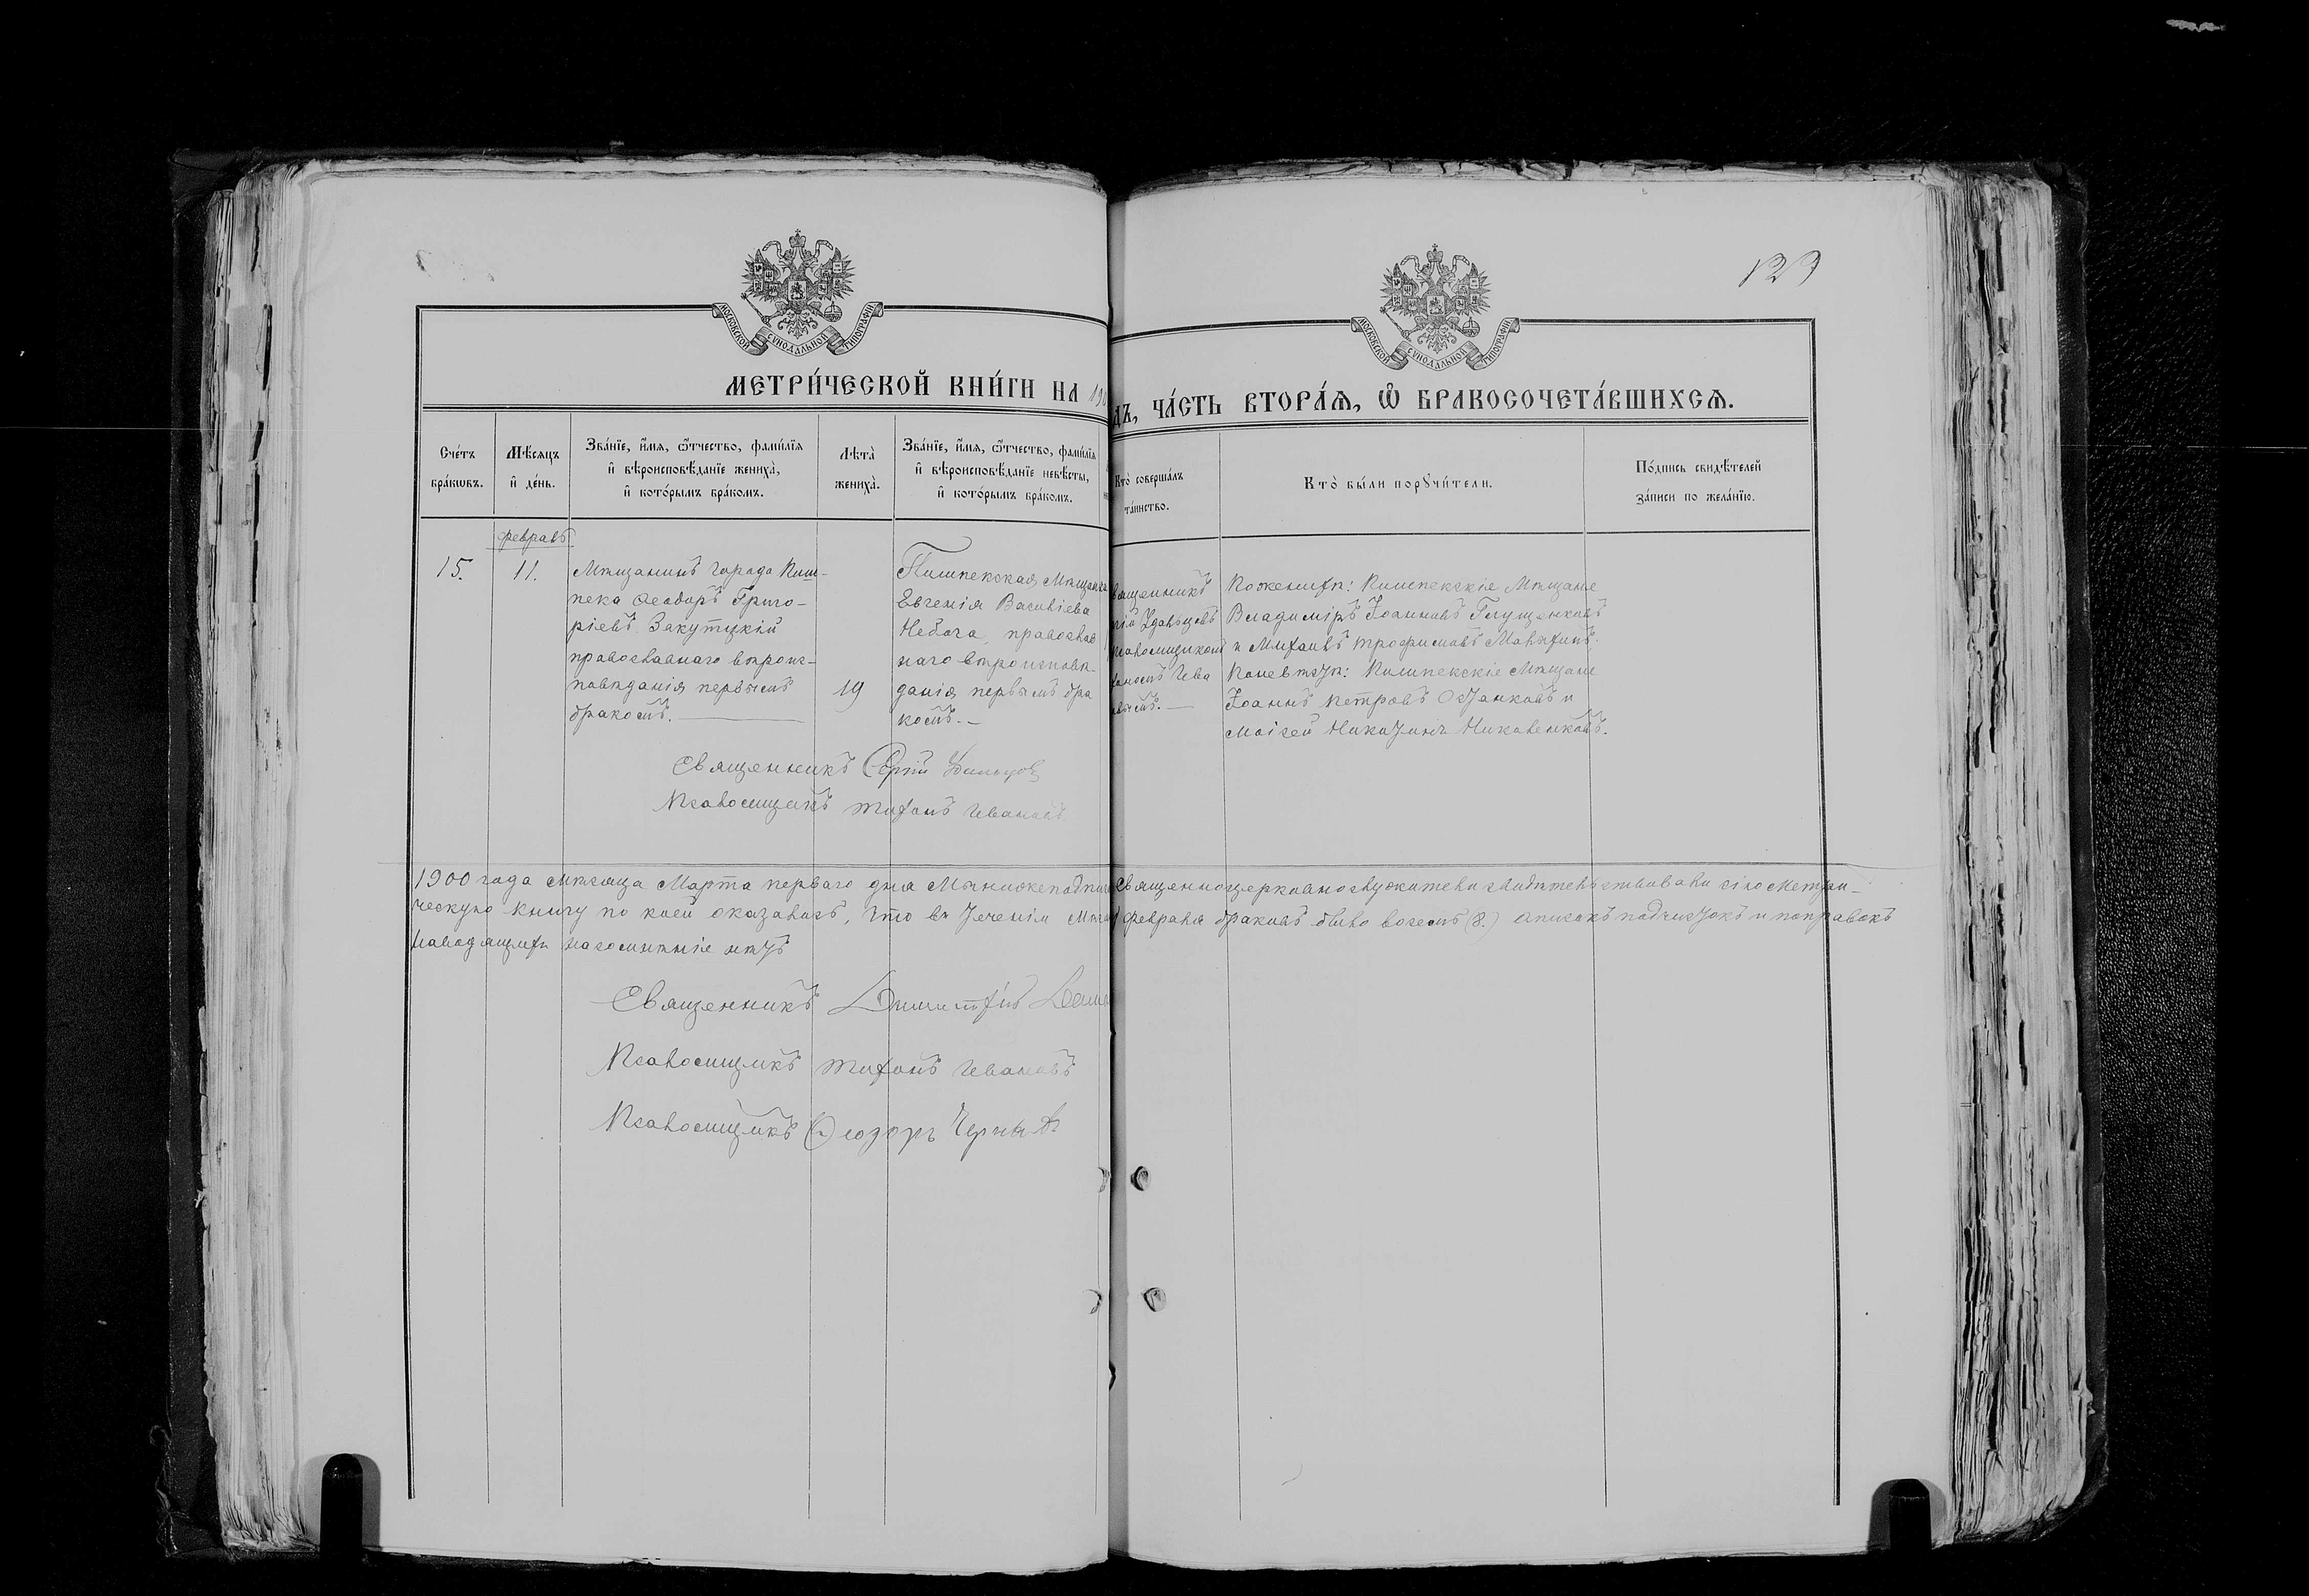 129
МОСКОВСКОЙ СѴНОДАЛЬНОЙ ТИПОГРАФІИ
МОСКОВСКОЙ СѴНОДАЛЬНОЙ ТИПОГРАФІИ
МЕТРИ́ЧЕСКОЙ КНИ́ГИ НА 190
ДЪ, ЧА́СТЬ ВТОРА́Я, Ѽ БРАКОСОЧЕТА́ВШИХСЯ.
Сче́тъ бра́кѡвъ.
Мѣ́сяцъ и҆ де́нь.
Зва́нїе, и҆́мя, ѻ҆́тчество, фами́лїя и҆ вѣроисповѣ́данїе жениха̀, и҆ кото́рымъ бра́комъ.
Лѣта̀ жениха̀.
Зва́нїе, и҆́мя, ѻ҆́тчество, фами́лїя и҆ вѣроисповѣ́данїе невѣ́сты, и҆ кото́рымъ бра́комъ.
Кто̀ соверша́лъ та́инство.
Кто̀ бы́ли порꙋчи́тели.
По́дпись свидѣ́телей за́писи по жела́нїю.
Февраль
15.
11.
Мѣщанинъ города Пиш-
пека Ѳеодоръ Григо-
ріевъ Закутцкій
православнаго вѣроис-
повѣданія первымъ
бракомъ.
19
Пишпекская Мѣщанка
Евгенія Василіева
Небога, православ
наго вѣроисповѣ-
данія первымъ бра
комъ.-
вященникъ
гій Удальцовъ
псаломщикомъ
хономъ Ива
вымъ.
По женихѣ: Пишпекскіе Мѣщане
Владиміръ Іоанновъ Глущенковъ
и Михаилъ Трофимовъ Малихинъ.
По невѣстѣ: Пишпекскіе Мѣщане
Іоаннъ Петровъ Остапковъ и
Моісей Никитинъ Николенковъ.
Священникъ Сергій Удальцовъ
Псаломщикъ Тихонъ Ивановъ.
1900 года Мѣсяца Марта перваго дня Мы нижеподпис священноцерковнослужители свидѣтельствовали сію Метри-
ческую книгу по коей оказалось, что въ теченіи Мѣсяц февраля браковъ было восемь (8.) описокъ подчистокъ и поправокъ
наводящихъ на сомнѣніе нѣтъ
Священникъ Димитрій
Псаломщикъ Тихонъ Ивановъ
Псаломщикъ Ѳеодоръ Черн